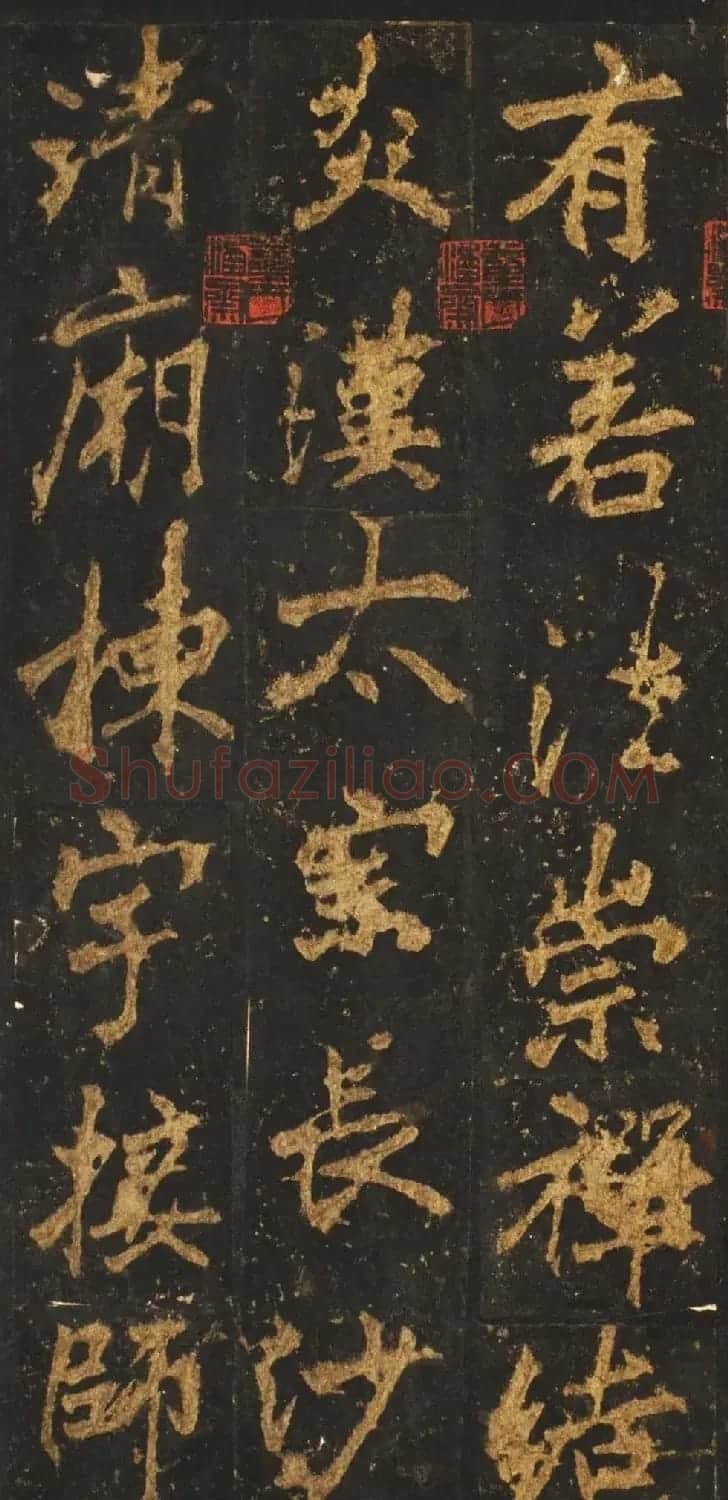 有若法崇禪結
炎漢太宗長沙
清廟棟宇接師
Shufaziliao.COM